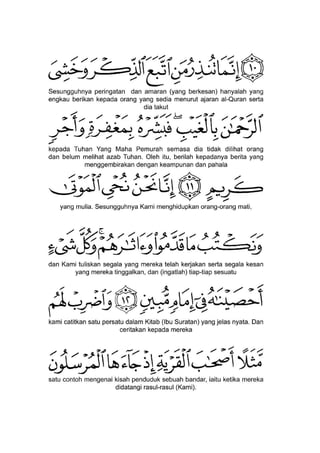 ۝١٠ إِنَّمَا تُنذِرُ مَنِ ٱتَّبَعَ ٱلذِّكْرَ وَخَشِىَ
Sesungguhnya peringatan dan amaran (yang berkesan) hanyalah yang
engkau berikan kepada orang yang sedia menurut ajaran al-Quran serta
dia takut
ٱلرَّحْمَـٰنَ بِٱلْغَيْبِ ۖ فَبَشِّرْهُ بِمَغْفِرَةٍ وَأَجْرٍ
kepada Tuhan Yang Maha Pemurah semasa dia tidak dilihat orang
dan belum melihat azab Tuhan. Oleh itu, berilah kepadanya berita yang
menggembirakan dengan keampunan dan pahala
كَرِيمٍ ۝١١ إِنَّا نَحْنُ نُحْىِ ٱلْمَوْتَىٰ
yang mulia. Sesungguhnya Kami menghidupkan orang-orang mati,
وَنَكْتُبُ مَا قَدَّمُوا۟ وَءَاثَـٰرَهُمْ ۚ وَكُلَّ شَىْءٍ
dan Kami tuliskan segala yang mereka telah kerjakan serta segala kesan
yang mereka tinggalkan, dan (ingatlah) tiap-tiap sesuatu
أَحْصَيْنَـٰهُ فِىٓ إِمَامٍ مُّبِينٍ ۝١٢ وَٱضْرِبْ لَهُم
kami catitkan satu persatu dalam Kitab (Ibu Suratan) yang jelas nyata. Dan
ceritakan kepada mereka
مَّثَلًا أَصْحَـٰبَ ٱلْقَرْيَةِ إِذْ جَآءَهَا ٱلْمُرْسَلُونَ
satu contoh mengenai kisah penduduk sebuah bandar, iaitu ketika mereka
didatangi rasul-rasul (Kami).